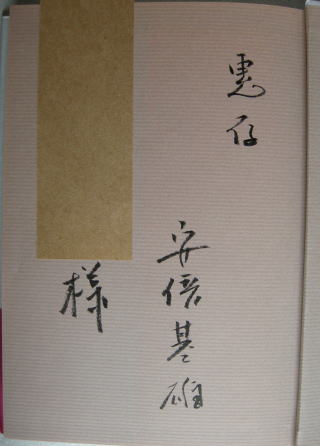 恵存
安倍基雄
様